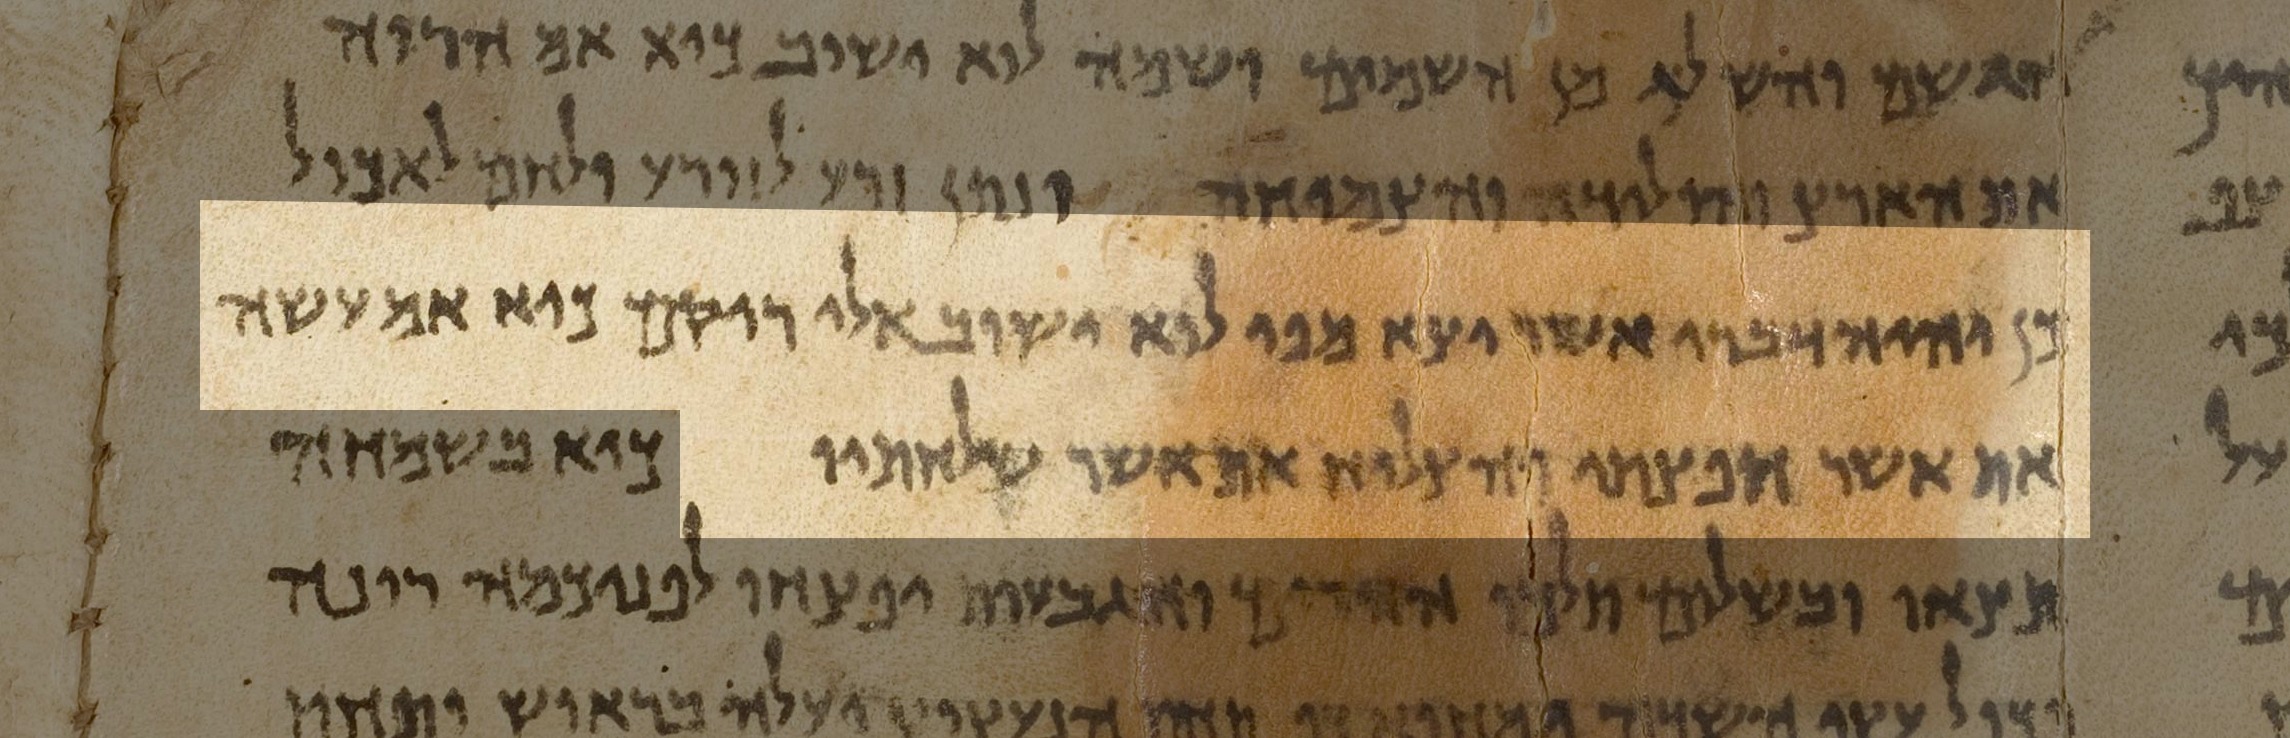 הגשם והשלג מן השמים ושמה לוא ישוב כיא אם הרוה
את הארץ והולידה והצמיחה ונתן זרע לזורע ולחם לאכול
כן יהיה דברי אשר יצא מפי לוא ישוב אלי ריקם כיא אם עשה
את אשר חפצתי והצליח את אשר שלחתיו כיא בשמחה
תצאו ובשלום תלכו ההרים והגבעות יפצחו לפניכמה רונה
וכול עצי השדה תחת הנעצוץ יעלה בראוש ותחת